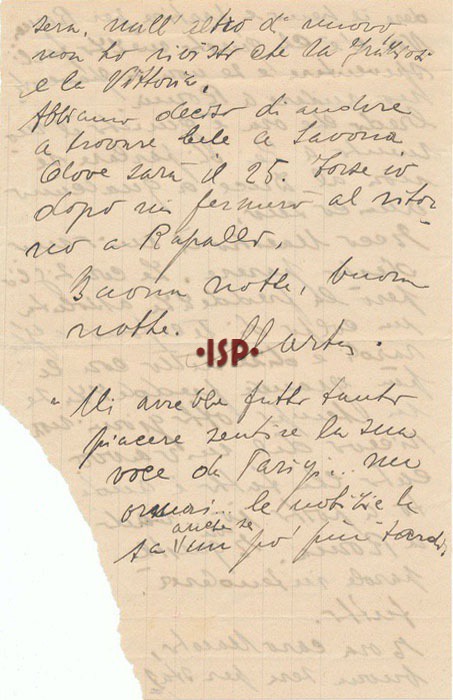 sera, null'altro di nuovo
non ho rivisto che la
e la Vittoria.
Abbiamo deciso di andare
a trovare Lele a Savona
dove sarà il 25. Forse io
dopo mi fermerò al ritor-
no a Rapallo.
Buona notte, buona
notte. Marta.
•ISP•
"Mi avrebbe fatto tanto
piacere sentire la sua
voce da Parigi... ma
ormai... le notizie le
sa anche se un po' più tardi.